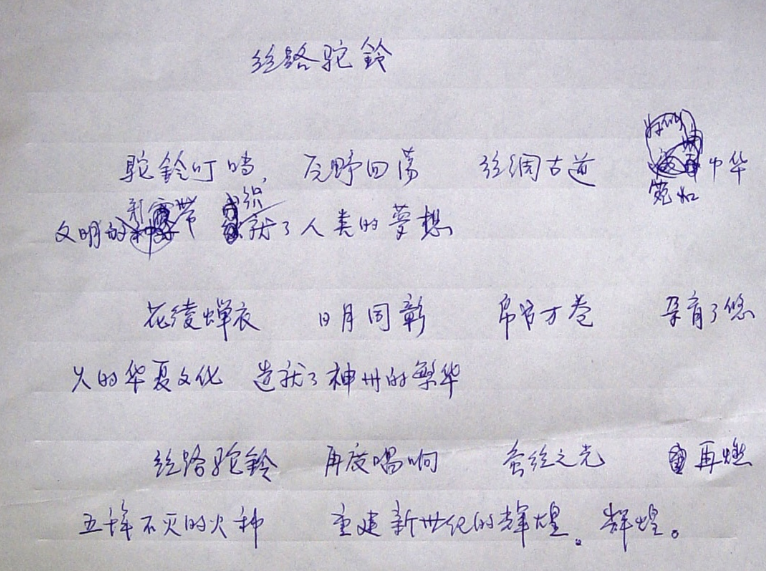 丝路驼铃
驼铃叮当， 旷野回荡 丝绸古道 宛如 中华
文明的 带 织就了人类的夢想
花绫蝉衣 日月同彰 帛书万卷 孕育了悠
久的华夏文化 造就了神州的繁华
丝路驼铃 再度唱响 蚕丝之光 再燃
五千年不灭的火种 重建新世纪的辉煌。辉煌。